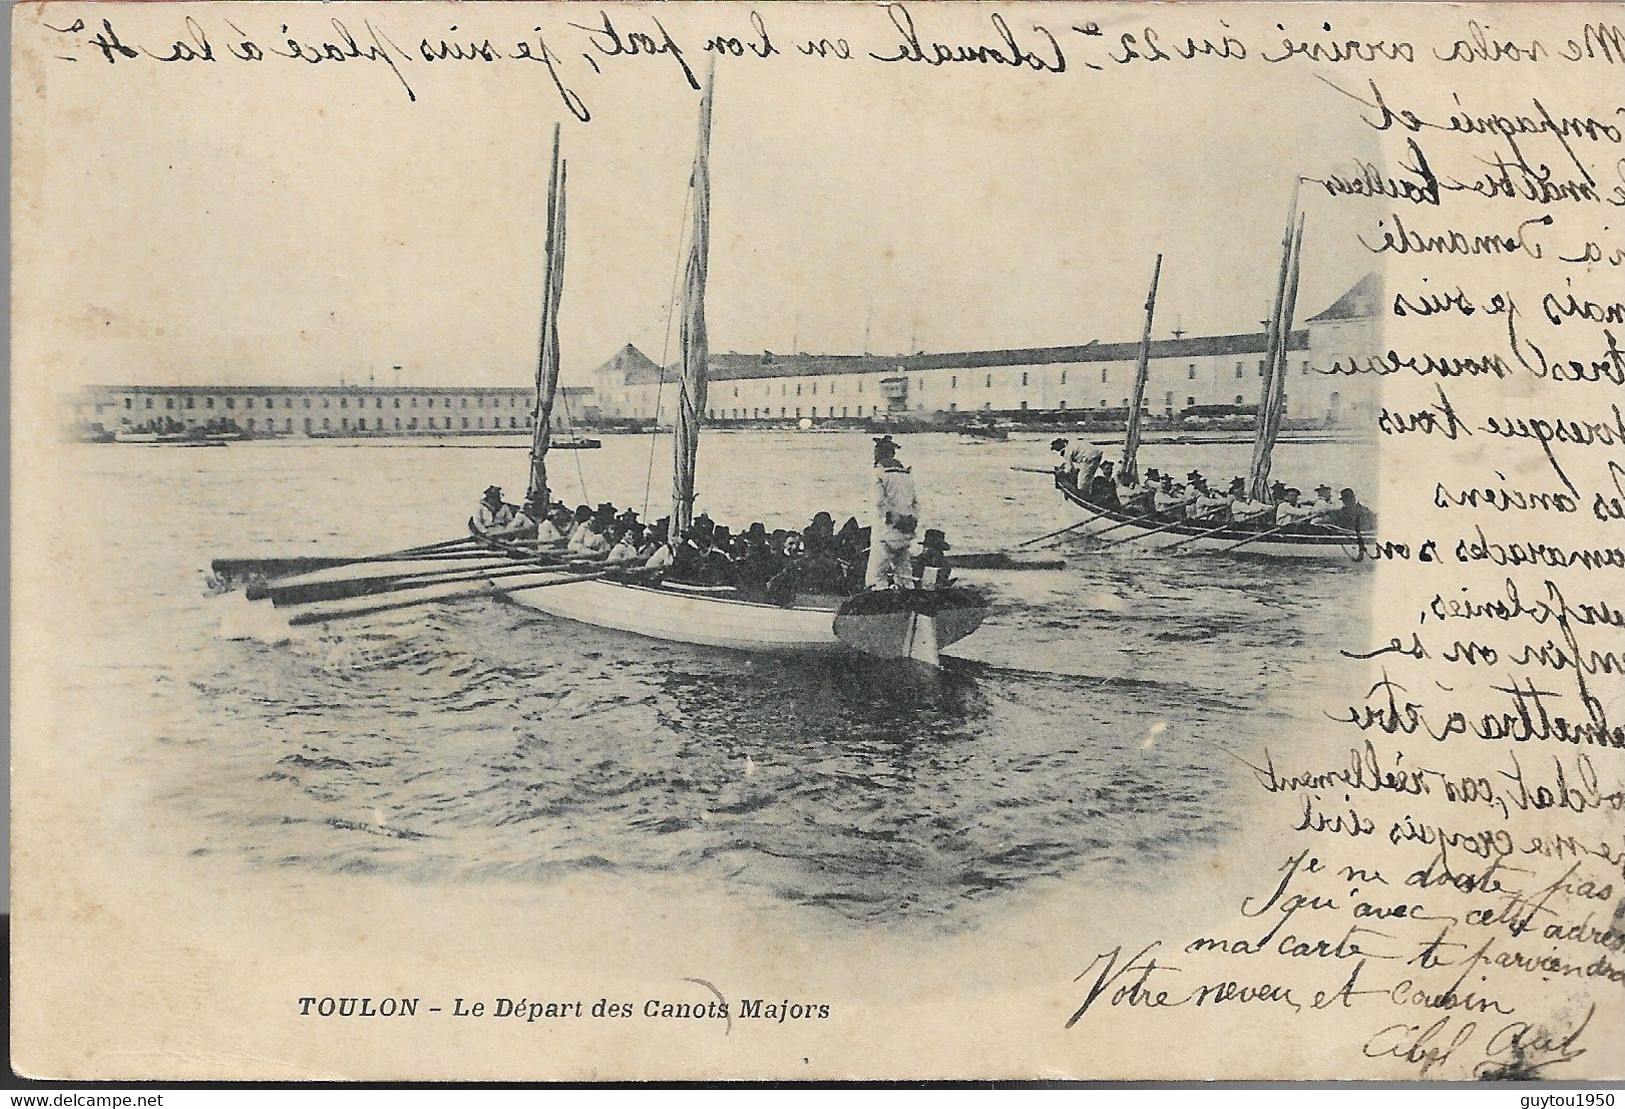 Me voila arrivé au 22e Coloniale en bon port, je suis placé à la 4e
Compagnie et
le maître tailleur
m'a demandé
mais je suis
tres nouveau
presque tous
les anciens
camarades sont
aux Colonies,
enfin on se
remettra à être
soldat, car réellement
je me croyais civil
Je ne doute pas
qu'avec cette adresse
ma carte te parviendra
Votre neveu et cousin
Abel
TOULON – Le Départ des Canots Majors
delcampe.net
guytou1950